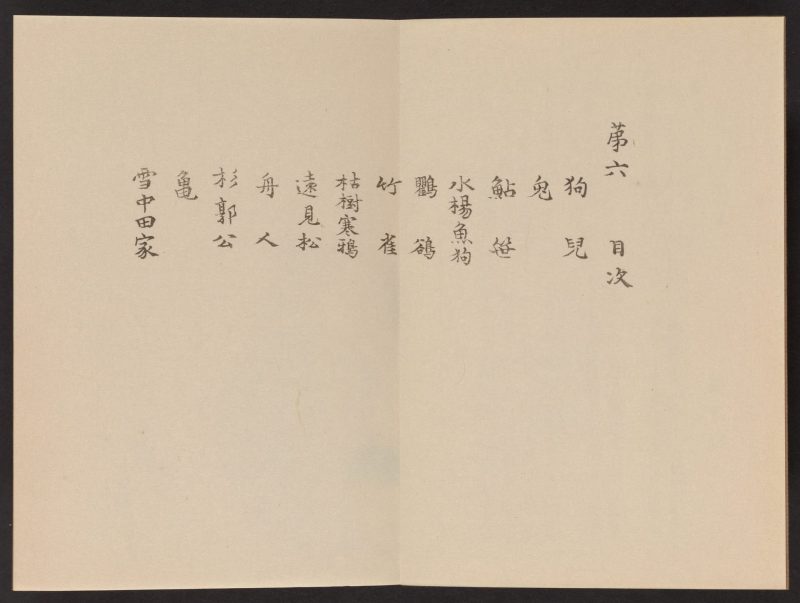 第六 目次
狗兒
兎
鮎笹
水楊魚狗
鸜鵒
竹雀
枯樹寒鴉
遠見松
舟人
杉郭公
亀
雪中田家